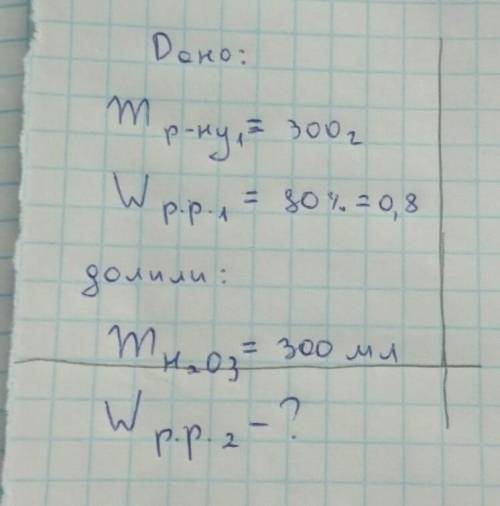 Дано:
m р-ну1 = 300г
W р.р.1 = 80% = 0,8
долили:
m H2O3 = 300 мл
W р.р.2 - ?